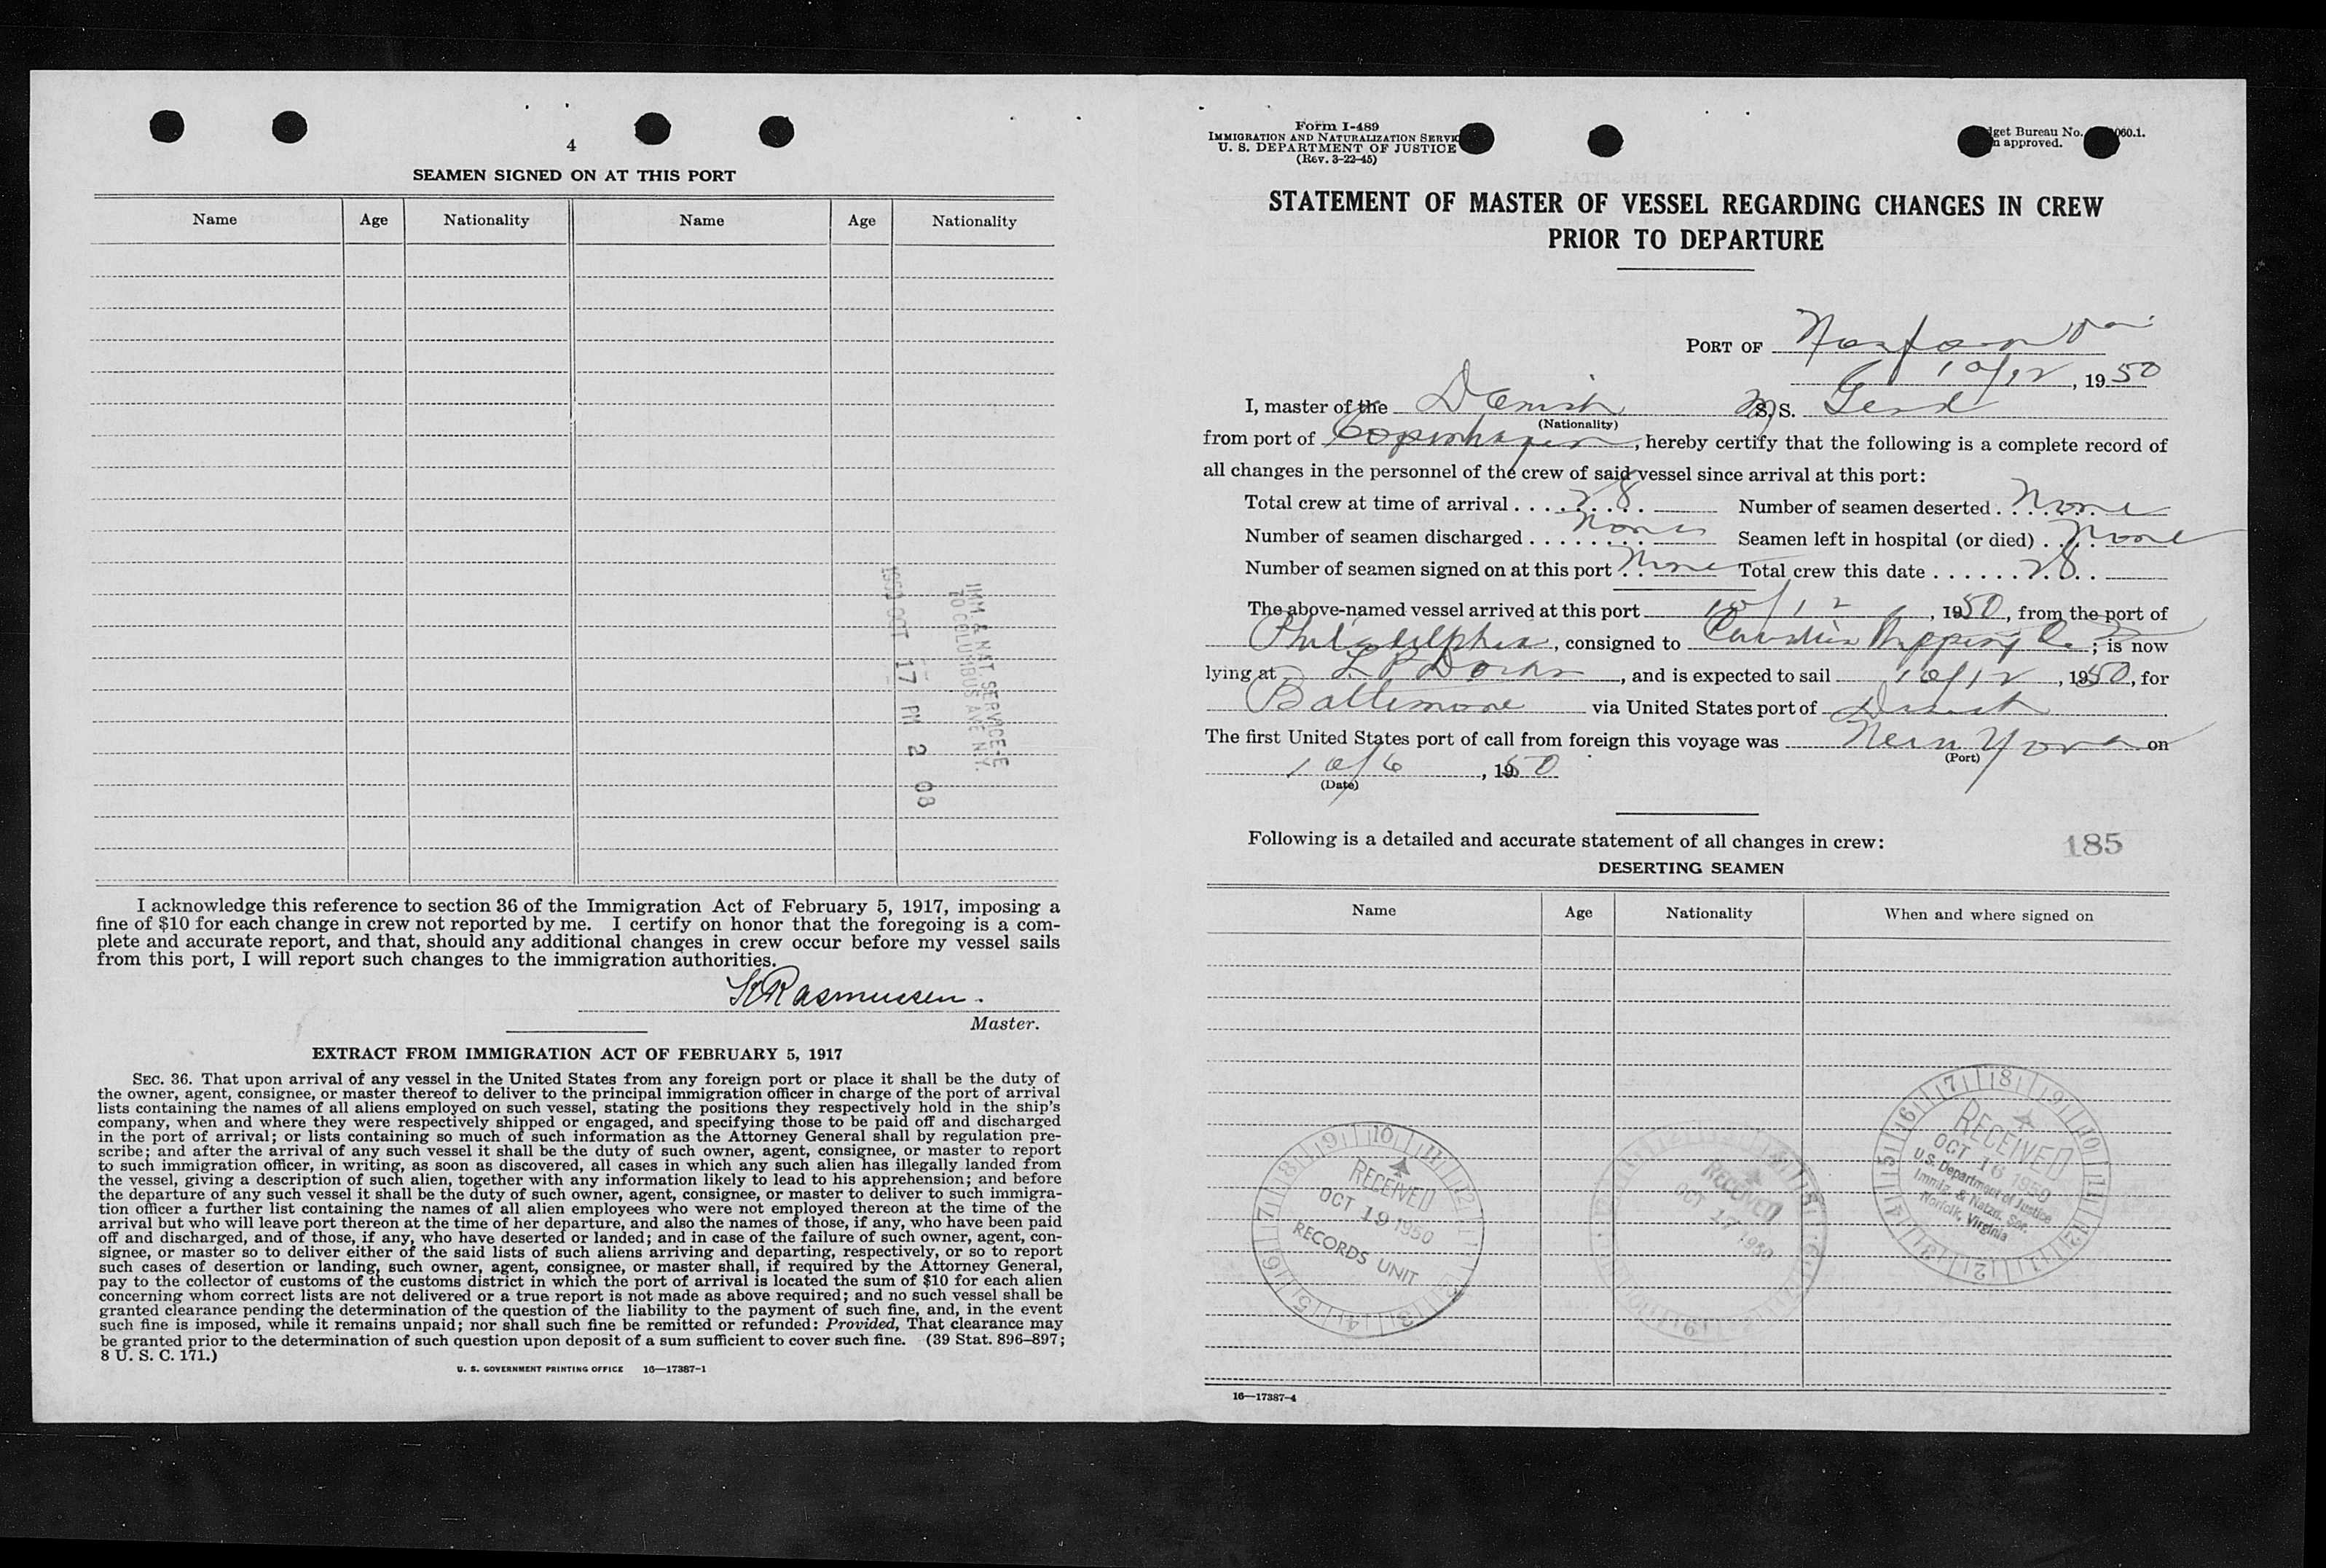 4
SEAMEN SIGNED ON AT THIS PORT
Name Age Nationality Name Age Nationality
IMM. & NAT. SERVICE
70 COLUMBUS AVE N.Y.
1950 OCT 17 PM 2 08
I acknowledge this reference to section 36 of the Immigration Act of February 5, 1917, imposing a
fine of $10 for each change in crew not reported by me. I certify on honor that the foregoing is a com-
plete and accurate report, and that, should any additional changes in crew occur before my vessel sails
from this port, I will report such changes to the immigration authorities.
Rasmussen.
Master.
EXTRACT FROM IMMIGRATION ACT OF FEBRUARY 5, 1917
SEC. 36. That upon arrival of any vessel in the United States from any foreign port or place it shall be the duty of
the owner, agent, consignee, or master thereof to deliver to the principal immigration officer in charge of the port of arrival
lists containing the names of all aliens employed on such vessel, stating the positions they respectively hold in the ship's
company, when and where they were respectively shipped or engaged, and specifying those to be paid off and discharged
in the port of arrival; or lists containing so much of such information as the Attorney General shall by regulation pre-
scribe; and after the arrival of any such vessel it shall be the duty of such owner, agent, consignee, or master to report
to such immigration officer, in writing, as soon as discovered, all cases in which any such alien has illegally landed from
the vessel, giving a description of such alien, together with any information likely to lead to his apprehension; and before
the departure of any such vessel it shall be the duty of such owner, agent, consignee, or master to deliver to such immigra-
tion officer a further list containing the names of all alien employees who were not employed thereon at the time of the
arrival but who will leave port thereon at the time of her departure, and also the names of those, if any, who have been paid
off and discharged, and of those, if any, who have deserted or landed; and in case of the failure of such owner, agent, con-
signee, or master so to deliver either of the said lists of such aliens arriving and departing, respectively, or so to report
such cases of desertion or landing, such owner, agent, consignee, or master shall, if required by the Attorney General,
pay to the collector of customs of the customs district in which the port of arrival is located the sum of $10 for each alien
concerning whom correct lists are not delivered or a true report is not made as above required; and no such vessel shall be
granted clearance pending the determination of the question of the liability to the payment of such fine, and, in the event
such fine is imposed, while it remains unpaid; nor shall such fine be remitted or refunded: Provided, That clearance may
be granted prior to the determination of such question upon deposit of a sum sufficient to cover such fine. (39 Stat. 896–897;
8 U. S. C. 171.)
U. S. GOVERNMENT PRINTING OFFICE 16—17387-1
Form I-489
IMMIGRATION AND NATURALIZATION SERVI
U. S. DEPARTMENT OF JUSTICE
(Rev. 3-22-45)
dget Bureau No. 060.1.
n approved.
STATEMENT OF MASTER OF VESSEL REGARDING CHANGES IN CREW
PRIOR TO DEPARTURE
PORT OF Norfolk Va.
10/12, 1950
I, master of the Danish M S. S. Gerd
(Nationality)
from port of Copenhagen, hereby certify that the following is a complete record of
all changes in the personnel of the crew of said vessel since arrival at this port:
Total crew at time of arrival 28 Number of seamen deserted None
Number of seamen discharged None Seamen left in hospital (or died) None
Number of seamen signed on at this port None Total crew this date 28
The above-named vessel arrived at this port 10/12, 1950, from the port of
Philadelphia, consigned to Shipping Co.; is now
lying at Docks, and is expected to sail 10/12, 1950, for
Baltimore via United States port of Direct
The first United States port of call from foreign this voyage was New York on
(Port)
10/6, 1950
(Date)
Following is a detailed and accurate statement of all changes in crew: 185
DESERTING SEAMEN
Name Age Nationality When and where signed on
RECEIVED
OCT 19 1950
RECORDS UNIT
RECEIVED
OCT 17 1950
RECEIVED
OCT 16 1950
U.S. Department of Justice
Immig. & Natzn. Ser.
Norfolk, Virginia
16—17387-4